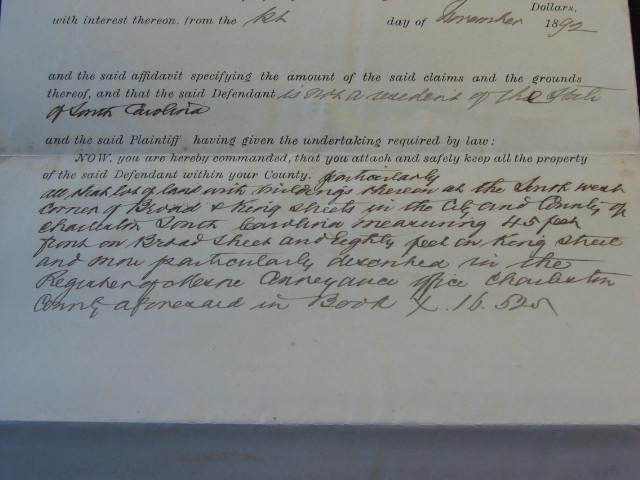 Dollars,
with interest thereon, from the 1st day of November 1892
and the said affidavit specifying the amount of the said claims and the grounds
thereof, and that the said Defendant is not a resident of the State
of South Carolina
and the said Plaintiff having given the undertaking required by law:
NOW, you are hereby commanded, that you attach and safely keep all the property
of the said Defendant within your County. particularly
all that lot of land with buildings thereon at the South west
corner of Broad & King streets in the City and County of
Charleston South Carolina measuring 45 feet
front on Broad Street and Eighty feet on King street
and more particularly described in the
Register of Mesne Conveyance office Charleston
County aforesaid in Book X. 16. 525